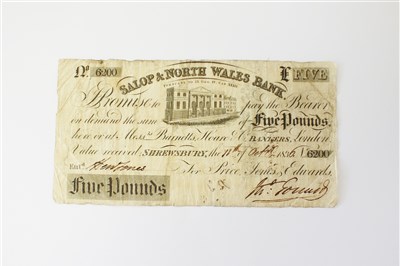 No 6200 £ FIVE
SALOP & NORTH WALES BANK.
I Promise to pay the Bearer
on demand the sum of Five Pounds.
here or at Messrs. Barnetts, Hoare & Co. BANKERS, London
Value received, SHREWSBURY, the 11th of Octbr. 1836 6200
Entd. For Price, Jones & Edwards,
Five Pounds